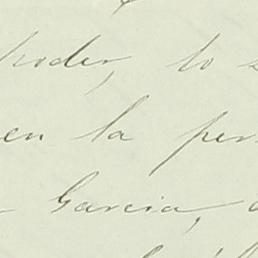 poder, lo
en la per
Garcia,